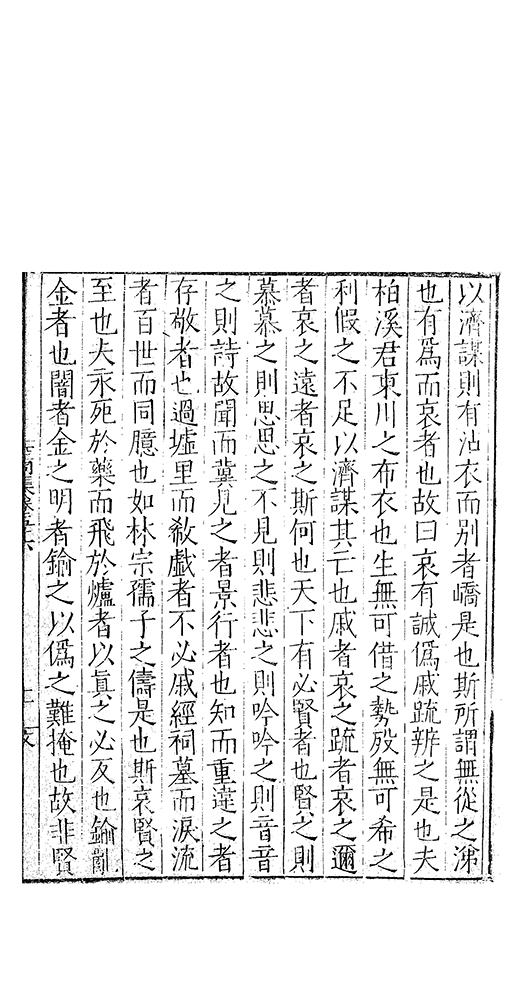 以濟謀則有沾衣而别者嶠是也斯所謂無從之涕
也有爲而哀者也故曰哀有誠僞戚䟽辨之是也夫
柏溪君東川之布衣也生無可借之勢歿無可希之
利假之不足以濟謀其亡也戚者哀之䟽者哀之邇
者哀之遠者哀之斯何也天下有必賢者也賢之則
慕慕之則思思之不見則悲悲之則吟吟之則音音
之則詩故聞而冀見之者景行者也知而重違之者
存敬者也過墟里而欷歔者不必戚經祠墓而淚流
者百世而同臆也如林宗孺子之儔是也斯哀賢之
至也夫汞死於藥而飛於爐者以真之必反也鍮
金者也闇者金之明者鍮之以僞之難掩也故非賢